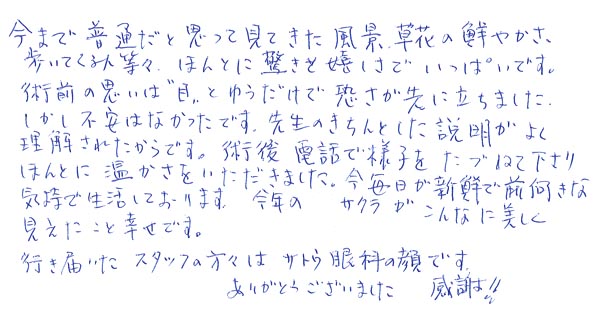 今まで普通だと思って見てきた風景、草花の鮮やかさ、
歩いてくる人等々、ほんとに驚きと嬉しさでいっぱいです。
術前の思いは"目"とゆうだけで恐さが先に立ちました。
しかし不安はなかったです。先生のきちんとした説明がよく
理解されたからです。術後電話で様子をたづねて下さり
ほんとに温かさをいただきました。今毎日が新鮮で前向きな
気持で生活しております。今年のサクラがこんなに美しく
見えたこと幸せです。
行き届いたスタッフの方々はサトウ眼科の顔です。
ありがとうございました 感謝!!